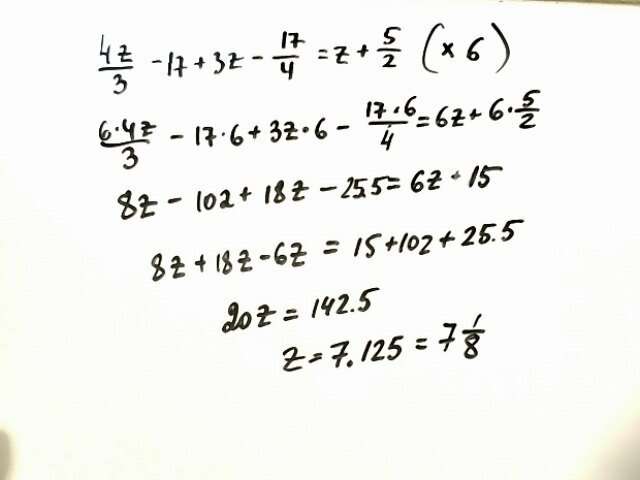 4z/3 - 17 + 3z - 17/4 = z + 5/2 (× 6)
6·4z/3 - 17·6 + 3z·6 - 17·6/4 = 6z + 6·5/2
8z - 102 + 18z - 25.5 = 6z + 15
8z + 18z - 6z = 15 + 102 + 25.5
20z = 142.5
z = 7.125 = 7 1/8